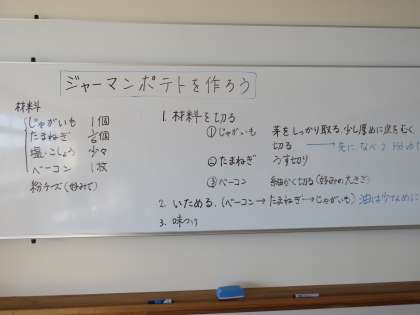 ジャーマンポテトを作ろう
材料
じゃがいも 1個
たまねぎ 1/2個
塩・こしょう 少々
ベーコン 1枚
粉チーズ(好みで)
1. 材料を切る
①じゃがいも 芽をしっかり取る。少し厚めに皮をむく。
切る → 先に
②たまねぎ うす切り
③ベーコン 細かく切る(好みの大きさ)
2. いためる。(ベーコン→たまねぎ→じゃがいも) 油は少なめに
3. 味つけ